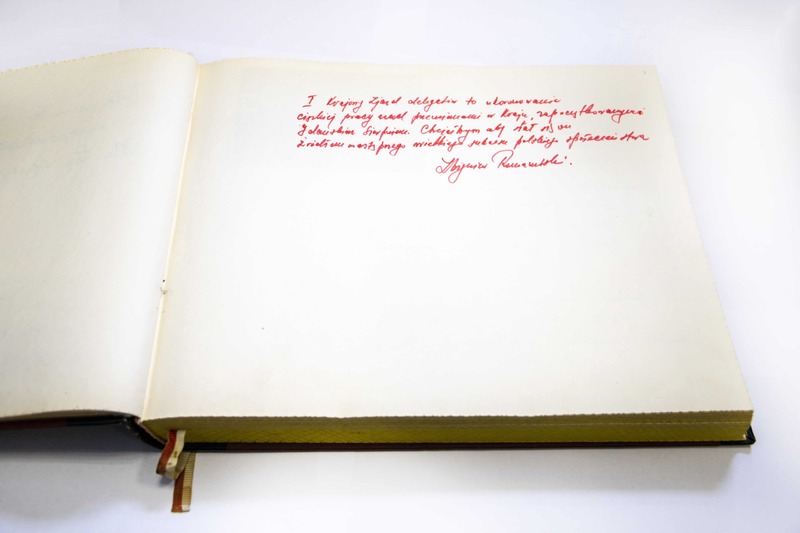 I Krajowy Zjazd delegatów to ukoronowanie
ciężkiej pracy nad przemianami w Kraju, zapoczątkowanymi
Gdańskim Sierpniem. Chciałbym aby stał się on
źródłem następnego wielkiego sukcesu polskiego społeczeństwa
Zbigniew Romaszewski.